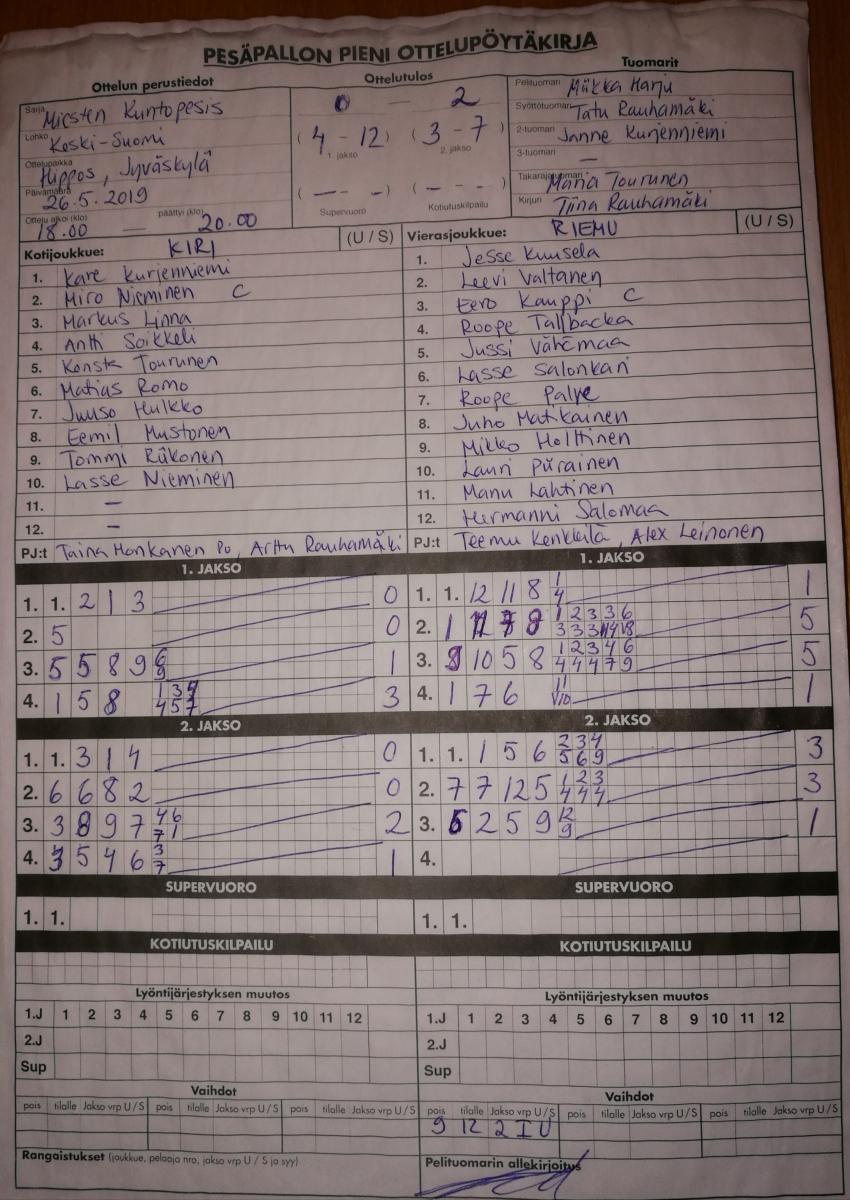 PESÄPALLON PIENI OTTELUPÖYTÄKIRJA
Ottelun perustiedot
Sarja Miesten Kuntopesis
Lohko Keski-Suomi
Ottelupaikka Hippos, Jyväskylä
Päivämäärä 26.5.2019
Ottelu alkoi (klo) 18.00 — päättyi (klo) 20.00
Ottelutulos
0 — 2
(4 - 12) (3 - 7)
1. jakso 2. jakso
(— - -) (- - -)
Supervuoro Kotiutuskilpailu
Tuomarit
Pelituomari Miikka Harju
Syöttötuomari Tatu Rauhamäki
2-tuomari Janne Kurjenniemi
3-tuomari —
Takarajatuomari Maria Tourunen
Kirjuri Tiina Rauhamäki
Kotijoukkue: KIRI (U / S)
1. Kare Kurjenniemi
2. Miro Nieminen C
3. Markus Linna
4. Antti Soikkeli
5. Konsta Tourunen
6. Matias Romo
7. Juuso Hulkko
8. Eemil Mustonen
9. Tommi Riikonen
10. Lasse Nieminen
11. —
12. —
PJ:t Taina Honkanen Po, Arttu Rauhamäki
Vierasjoukkue: RIEMU (U / S)
1. Jesse Kuusela
2. Leevi Valtanen
3. Eero Kauppi C
4. Roope Tallbacka
5. Jussi Vähämaa
6. Lasse Salonkari
7. Roope Palve
8. Juho Matikainen
9. Mikko Holttinen
10. Lauri Piirainen
11. Manu Lahtinen
12. Hermanni Salomaa
PJ:t Teemu Kenkkilä, Alex Leinonen
1. JAKSO
1. 1. 2 1 3 0
2. 5 0
3. 5 5 8 9 6 9 1
4. 1 5 8 1 3 4 4 5 7 3
1. JAKSO
1. 1. 12 11 8 1 4 1
2. 1 5
3. 10 5 8 1 2 3 4 6 4 4 4 7 9 5
4. 1 7 6 1
2. JAKSO
1. 1. 3 1 4 0
2. 6 6 8 2 0
3. 3 8 9 7 4 6 7 1 2
4. 3 5 4 6 3 7 1
2. JAKSO
1. 1. 1 5 6 2 3 4 5 6 9 3
2. 7 7 12 5 1 2 3 4 4 4 3
3. 6 2 5 9 12 9 1
4.
SUPERVUORO
1. 1.
SUPERVUORO
1. 1.
KOTIUTUSKILPAILU
KOTIUTUSKILPAILU
Lyöntijärjestyksen muutos
1.J 1 2 3 4 5 6 7 8 9 10 11 12
2.J
Sup
Lyöntijärjestyksen muutos
1.J 1 2 3 4 5 6 7 8 9 10 11 12
2.J
Sup
Vaihdot
pois tilalle Jakso vrp U / S pois tilalle Jakso vrp U / S pois tilalle Jakso vrp U / S
Vaihdot
pois tilalle Jakso vrp U/S pois tilalle Jakso vrp U / S pois tilalle Jakso vrp U / S
9 12 2 I U
Rangaistukset (joukkue, pelaaja nro, jakso vrp U / S ja syy)
Pelituomarin allekirjoitus